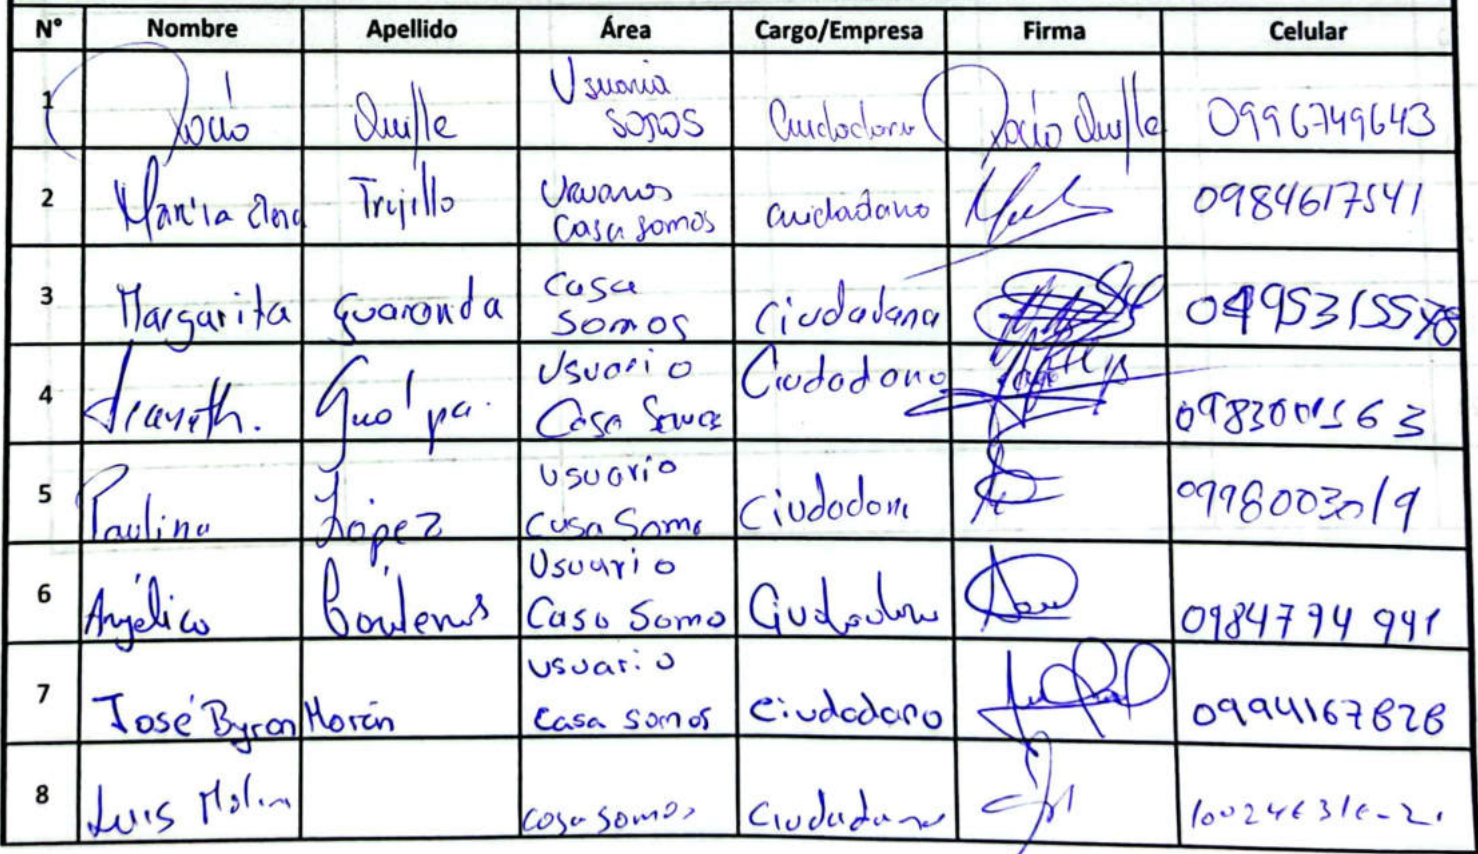 N° Nombre Apellido Área Cargo/Empresa Firma Celular
1 Rocío Quille Usuaria Somos Ciudadana Rocío Quille 0996749643
2 Trujillo Usuarios Casa Somos Ciudadano 0984617541
3 Margarita Guaranda Casa Somos Ciudadana
4 Usuario Casa Somos Ciudadano
5 Paulina López Usuario Casa Somo Ciudadana 0998003019
6 Angélica Usuario Casa Somo Ciudadana 0984794941
7 José Byron Morán Usuario Casa Somos Ciudadano 0994167828
8 Luis Molina Casa Somos Ciudadano